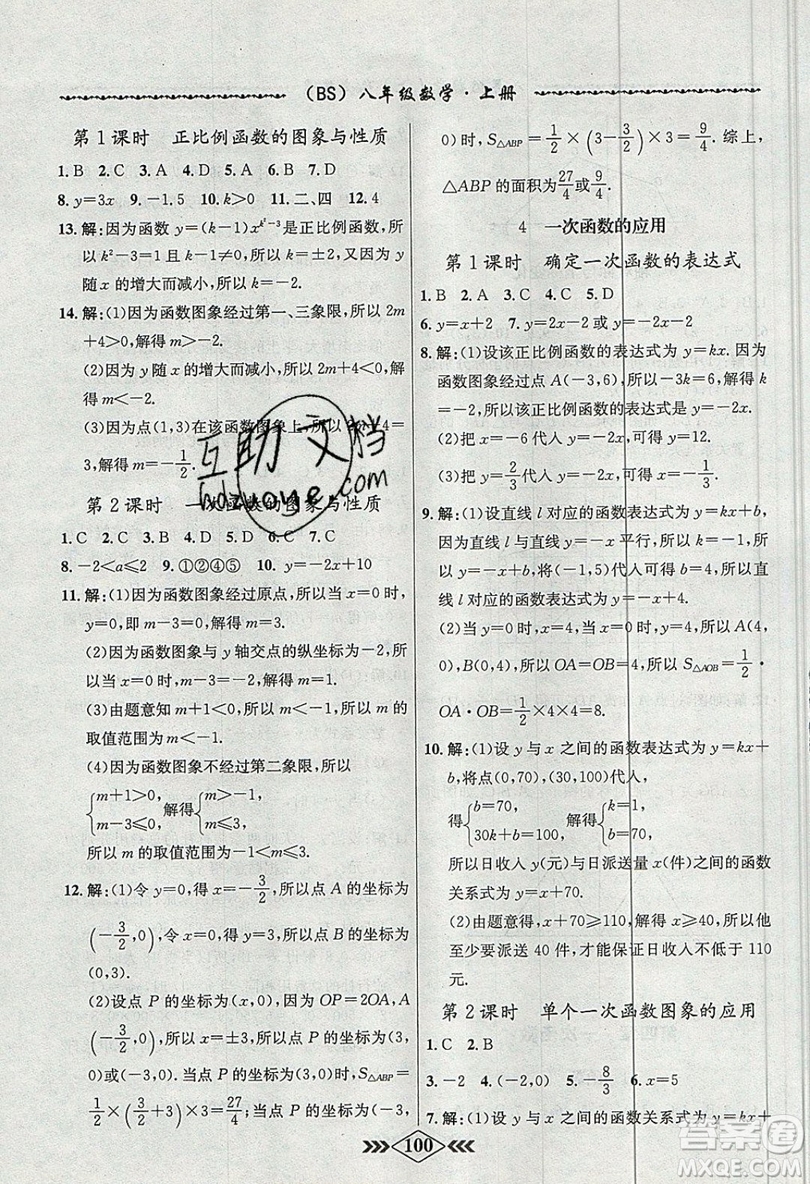 (BS)八年级数学·上册
第1课时 正比例函数的图象与性质
1.B 2.C 3.A 4.D 5.A 6.D 7.D
8.y=3x 9.-1.5 10.k>0 11.二、四 12.4
13.解:因为函数 y=(k-1)x^{k²-3}是正比例函数,所
以 k²-3=1且 k-1≠0,所以 k=±2,又因为 y
随 x 的增大而减小,所以 k=-2.
14.解:(1)因为函数图象经过第一、三象限,所以 2m
+4>0,解得 m>-2.
(2)因为 y 随 x 的增大而减小,所以 2m+4<0,解
得 m<-2.
(3)因为点(1,3)在该函数图象上,所以 2m+4=
3,解得 m=-1/2.
第2课时 一次函数的图象与性质
1.C 2.C 3.D 4.C 5.D 6.C 7.C
8.-2<a≤2 9.①②④⑤ 10.y=-2x+10
11.解:(1)因为函数图象经过原点,所以当 x=0 时,
y=0,即 m-3=0,解得 m=3.
(2)因为函数图象与 y 轴交点的纵坐标为-2,所
以当 x=0 时,y=-2,即 m-3=-2,解得 m=1.
(3)由题意知 m+1<0,解得 m<-1,所以 m 的
取值范围为 m<-1.
(4)因为函数图象不经过第二象限,所以
{m+1>0, m-3≤0, 解得{m>-1, m≤3,
所以 m 的取值范围为-1<m≤3.
12.解:(1)令 y=0,得 x=-3/2,所以点 A 的坐标为
(-3/2,0);令 x=0,得 y=3,所以点 B 的坐标为
(0,3).
(2)设点 P 的坐标为(x,0),因为 OP=2OA,A
(-3/2,0),所以 x=±3,所以点 P 的坐标为(3,
0)或(-3,0).当点 P 的坐标为(3,0)时,S△ABP=
1/2×(3/2+3)×3=27/4;当点 P 的坐标为(-3,
0)时,S△ABP=1/2×(3-3/2)×3=9/4.综上,
△ABP 的面积为27/4或9/4.
4 一次函数的应用
第1课时 确定一次函数的表达式
1.B 2.A 3.A 4.C 5.D
6.y=x+2 7.y=2x-2或 y=-2x-2
8.解:(1)设该正比例函数的表达式为 y=kx.因为
函数图象经过点 A(-3,6),所以-3k=6,解得 k=
-2,所以该正比例函数的表达式为 y=-2x.
(2)把 x=-6代人 y=-2x,可得 y=12.
(3)把 y=2/3代人 y=-2x,可得 x=-1/3.
9.解:(1)设直线 l 对应的函数表达式为 y=kx+b,
因为直线 l 与直线 y=-x 平行,所以 k=-1.因
为直线 l 过点(2,2),所以 2=-2+b,所以 b=4,
所以直线 l 对应的函数表达式为 y=-x+4.
(2)当 y=0 时,x=4;当 x=0 时,y=4,所以 A(4,
0),B(0,4),所以 OA=OB=4,所以 S△AOB=1/2·
OA·OB=1/2×4×4=8.
10.解:(1)设 y 与 x 之间的函数表达式为 y=kx+
b,将点(0,70),(30,100)代人,
得{b=70, 30k+b=100, 解得{k=1, b=70,
所以日收入 y(元)与日派送量 x(件)之间的函数
关系式为 y=x+70.
(2)由题意,得 x+70≥110,解得 x≥40,所以他
至少要派送 40 件,才能保证日收入不少于 110
元.
第2课时 单个一次函数图象的应用
1.C 2.B
3.-2 4.x=2 5.-8/3 6.x=5
7.解:(1)设 y 与 x 的函数关系式为 y=kx+b,由
100
互助文档
hdzuoye.com
答案圈
MXQE.COM